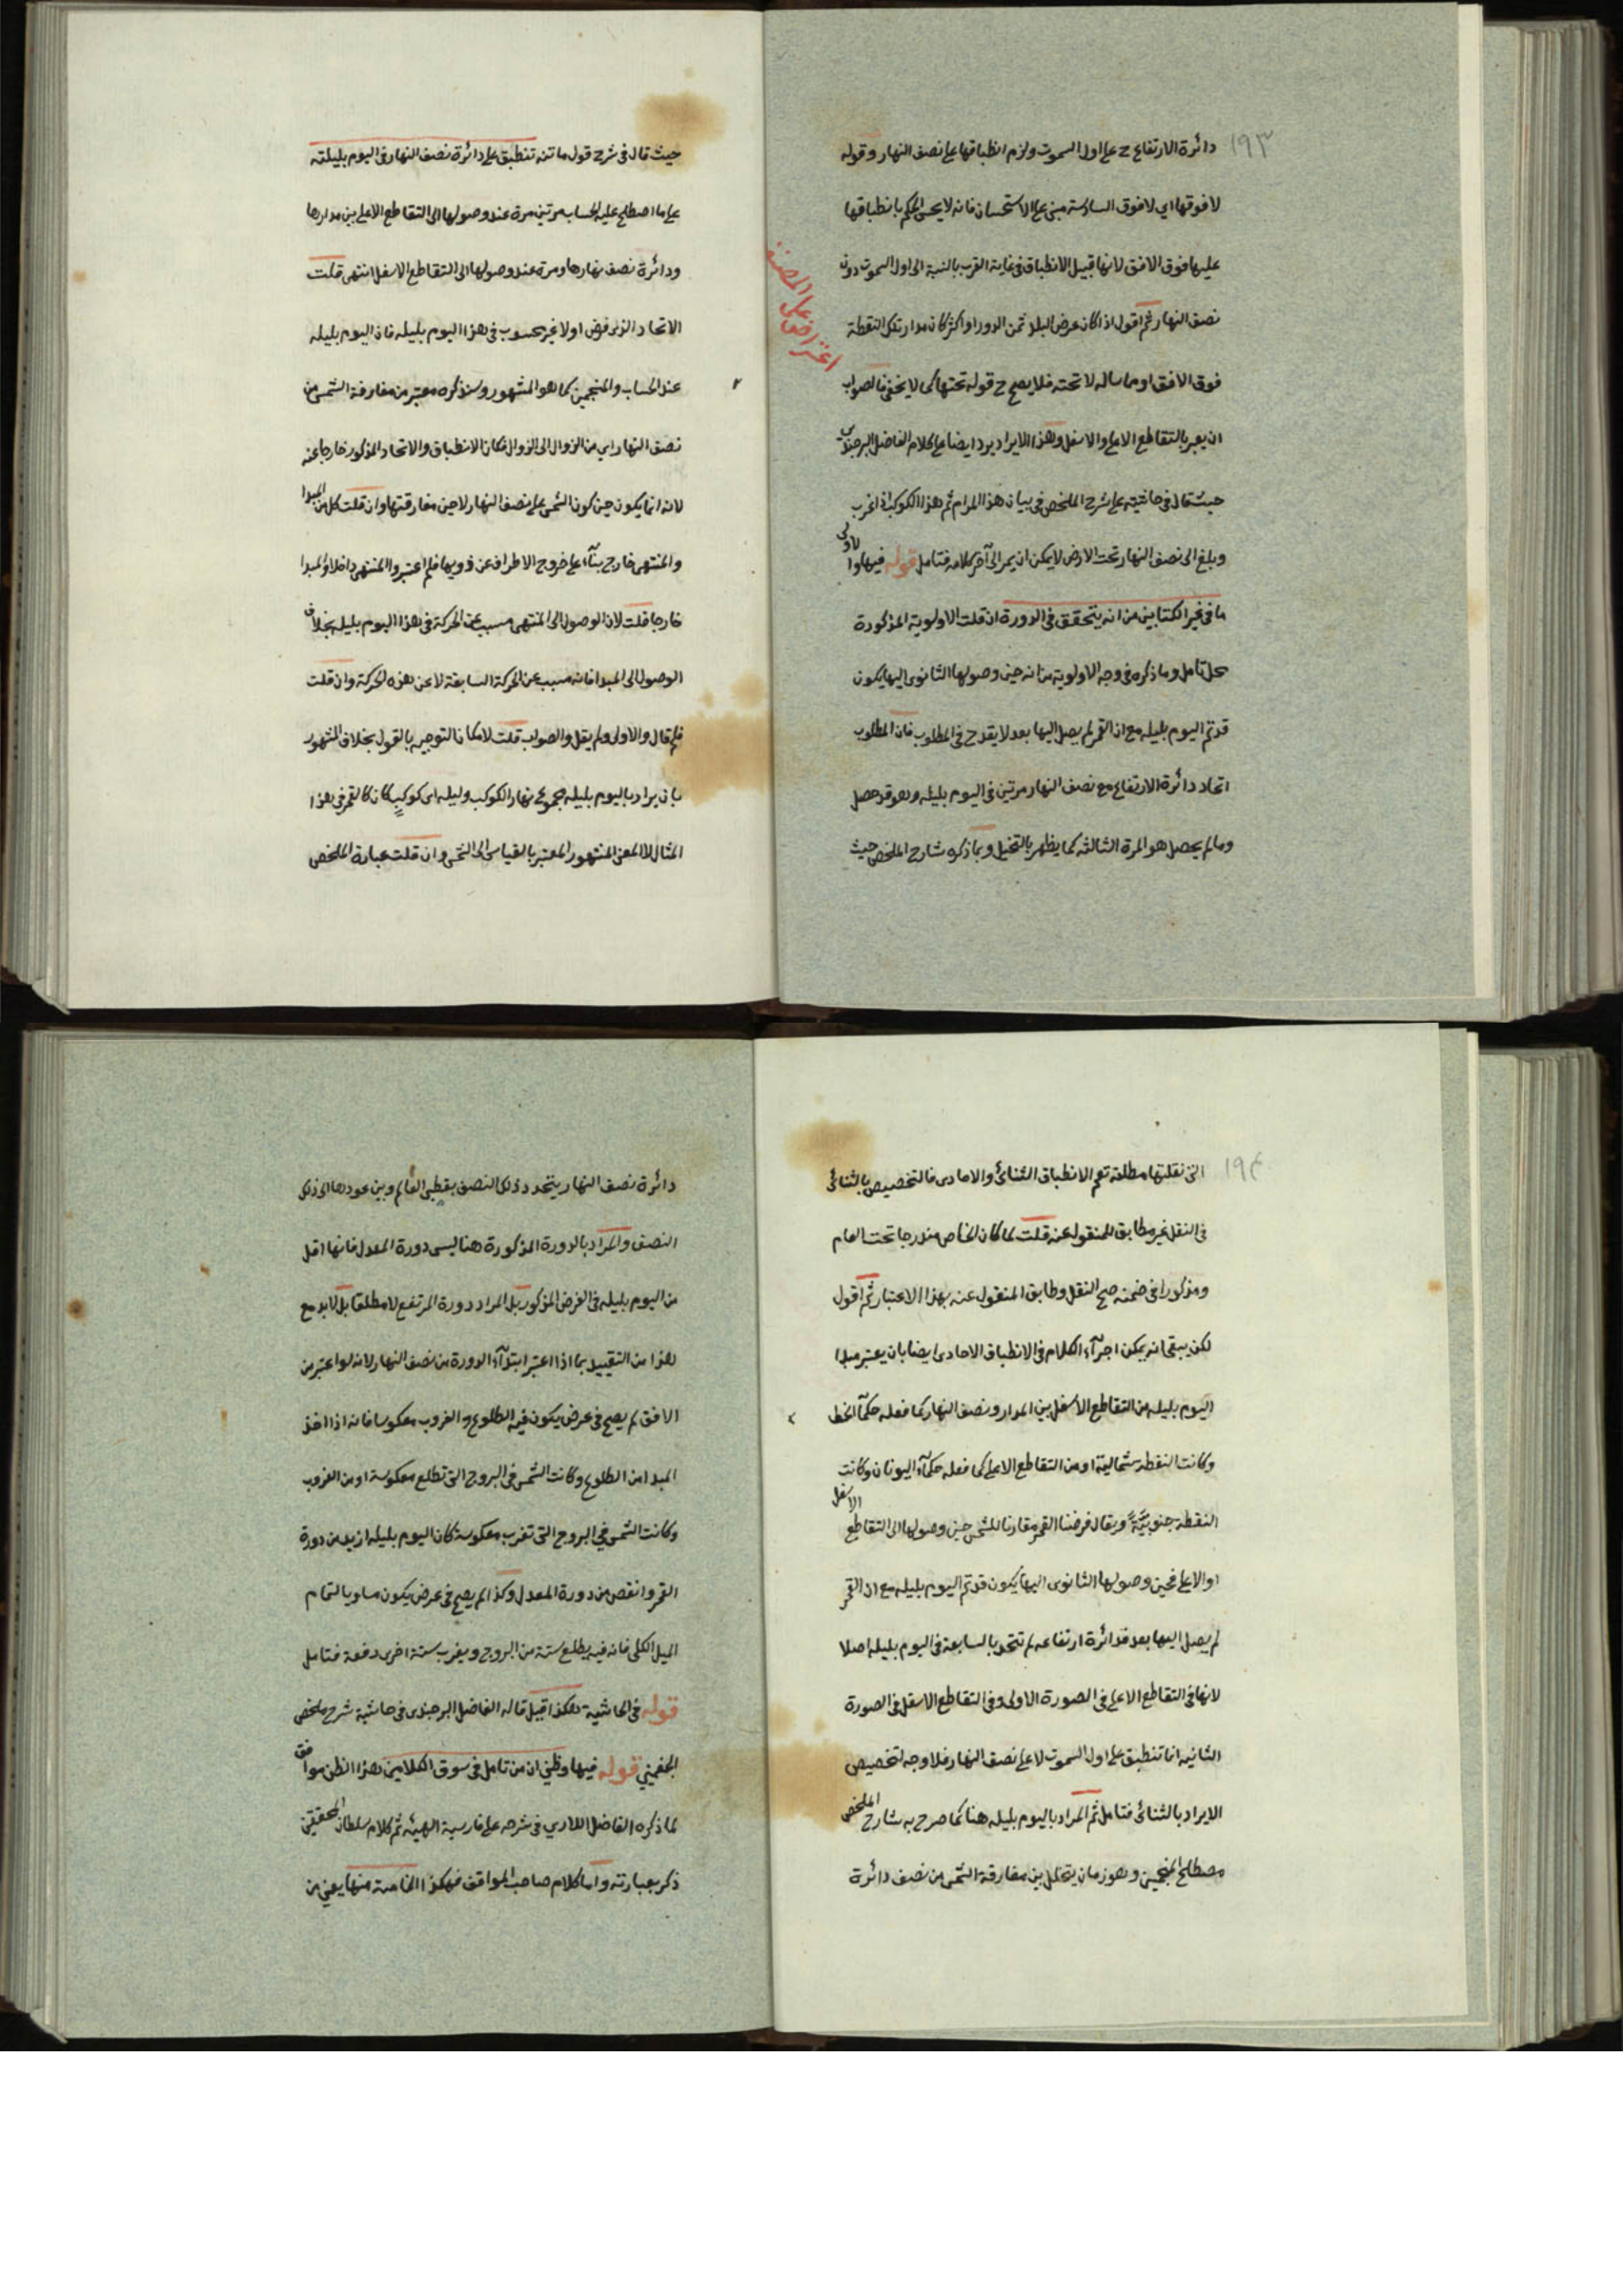 ١٩٣
دائرة الارتفاع ح على اول السموت ولزم انطباقها على نصف النهار وقوله
لا فوقها اي لا فوق السادسة مبنى على الاستحسان فانه لا يحسن الحكم بانطباقها
عليها فوق الافق لانها قبيل الانطباق فى غاية القرب بالنسبة الى اول السموت دون
نصف النهار ثم اقول اذا كان عرض البلد ثمن الدور او اكثر كان مدار تلك النقطة
فوق الافق او مماسا له لا تحته فلا يصح ح قوله تحتها كما لا يخفى فالصواب
ان يعبر بالتقاطع الاعلى والاسفل وهذا الايراد يرد ايضا على كلام الفاضل البرجندى
حيث قال فى حاشيته على شرح الملخص فى بيان هذا المرام ثم هذا الكوكب اذا غرب
وبلغ الى نصف النهار تحت الارض لا يمكن ان يمر الى آخر كلامه فتامل قوله فيها والاولى
ما فى غير الكتابين من انه يتحقق فى الدورة ان قلت الاولوية المذكورة
محل تامل وما ذكره فى وجه الاولوية من انه حين وصولها الثانوى اليها يكون
قد تم اليوم بليله مع ان القمر لم يصل اليها بعد لا يقدح فى المطلوب فان المطلوب
اتحاد دائرة الارتفاع مع نصف النهار مرتين فى اليوم بليله وهو قد حصل
وما لم يحصل هو المرة الثالثة كما يظهر بالتخيل وبما ذكره شارح الملخص حيث
اعتراض على المصنف
حيث قال فى شرح قول ماتنه تنطبق على دائرة نصف النهار فى اليوم بليلته
على ما اصطلح عليه الحساب مرتين مرة عند وصولها الى التقاطع الاعلى بين مدارها
ودائرة نصف نهارها ومرة عند وصولها الى التقاطع الاسفل انتهى قلت
الاتحاد الذى فرض اولا غير محسوب فى هذا اليوم بليله فان اليوم بليله
عند الحساب والمنجمين كما هو المشهور وسنذكره معتبر من مفارقة الشمس من
نصف النهار اي من الزوال الى الزوال فكان الانطباق والاتحاد المذكور خارجا عنه
لانه انما يكون حين كون الشمس على نصف النهار لا حين مفارقتها وان قلت كل من المبدا
والمنتهى خارج بنآء على خروج الاطراف عن ذويها فلم اعتبروا المنتهى داخلا والمبدا
خارجا قلت لان الوصول الى المنتهى مسبب عن الحركة فى هذا اليوم بليله بخلاف
الوصول الى المبدا فانه مسبب عن الحركة السابقة لا عن هذه الحركة وان قلت
فلم قال والاولى ولم يقل والصواب قلت لامكان التوجيه بالقول بخلاف المشهور
بان يراد باليوم بليله مجموع نهار الكوكب وليله اى كوكب كان كالقمر فى هذا
المثال لا المعنى المشهور المعتبر بالقياس الى الشمس وان قلت عبارة الملخص
١٩٤
التى نقلتها مطلقة تعم الانطباق الثنائى والاحادى فالتخصيص بالثنائى
فى النقل غير مطابق للمنقول عنه قلت لما كان الخاص مندرجا تحت العام
ومذكورا فى ضمنه صح النقل وطابق المنقول عنه بهذا الاعتبار ثم اقول
لكن يبقى انه يمكن اجرآء الكلام فى الانطباق الاحادى ايضا بان يعتبر مبدا
اليوم بليله من التقاطع الاسفل بين المدار ونصف النهار كما فعله حكمآء الخطا
وكانت النقطة شمالية او من التقاطع الاعلى كما فعله حكمآء اليونان وكانت
النقطة جنوبيّة ويقال فرضنا القمر مقارنا للشمس حين وصولها الى التقاطع الاسفل
او الاعلى فحين وصولها الثانوى اليها يكون قد تم اليوم بليله مع ان القمر
لم يصل اليها بعد فدائرة ارتفاعه لم تتحد بالسابعة فى اليوم بليله اصلا
لانها فى التقاطع الاعلى فى الصورة الاولى وفى التقاطع الاسفل فى الصورة
الثانيه انما تنطبق على اول السموت لا على نصف النهار فلا وجه لتخصيص
الايراد بالثنائى فتامل ثم المراد باليوم بليله هنا كما صرح به شارح الملخص
مصطلح المنجمين وهو زمان يتخلل بين مفارقة الشمس من نصف دائرة
دائرة نصف النهار يتحدد ذلك النصف بقطبى العالم وبين عودها الى ذلك
النصف والمراد بالدورة المذكورة هنا ليس دورة المعدل فانها اقل
من اليوم بليله فى الفرض المذكور بل المراد دورة المرتفع لا مطلقا بل لا بد مع
هذا من التقييد بما اذا اعتبر ابتدآء الدورة من نصف النهار لانه لو اعتبر من
الافق لم يصح فى عرض يكون فيه الطلوع والغروب معكوسا فانه اذا اخذ
المبدا من الطلوع وكانت الشمس فى البروج التى تطلع معكوسة او من الغروب
وكانت الشمس فى البروج التى تغرب معكوسة كان اليوم بليله ازيد من دورة
القمر وانقص من دورة المعدل وكذا لم يصح فى عرض يكون مساويا لتمام
الميل الكلى فانه فيه يطلع ستة من البروج ويغرب ستة اخرى دفعة فتامل
قوله فى الحاشية هكذا قيل قاله الفاضل البرجندى فى حاشية شرح ملخص
الجغمينى قوله فيها وظنى ان من تامل فى سوق الكلامين هذا الظن موافق
لما ذكره الفاضل اللارى فى شرحه على فارسية الهيئه ثم كلام سلطان المحققين
ذكر بعبارته واما كلام صاحب المواقف فهكذا الخامسة منها يعنى من